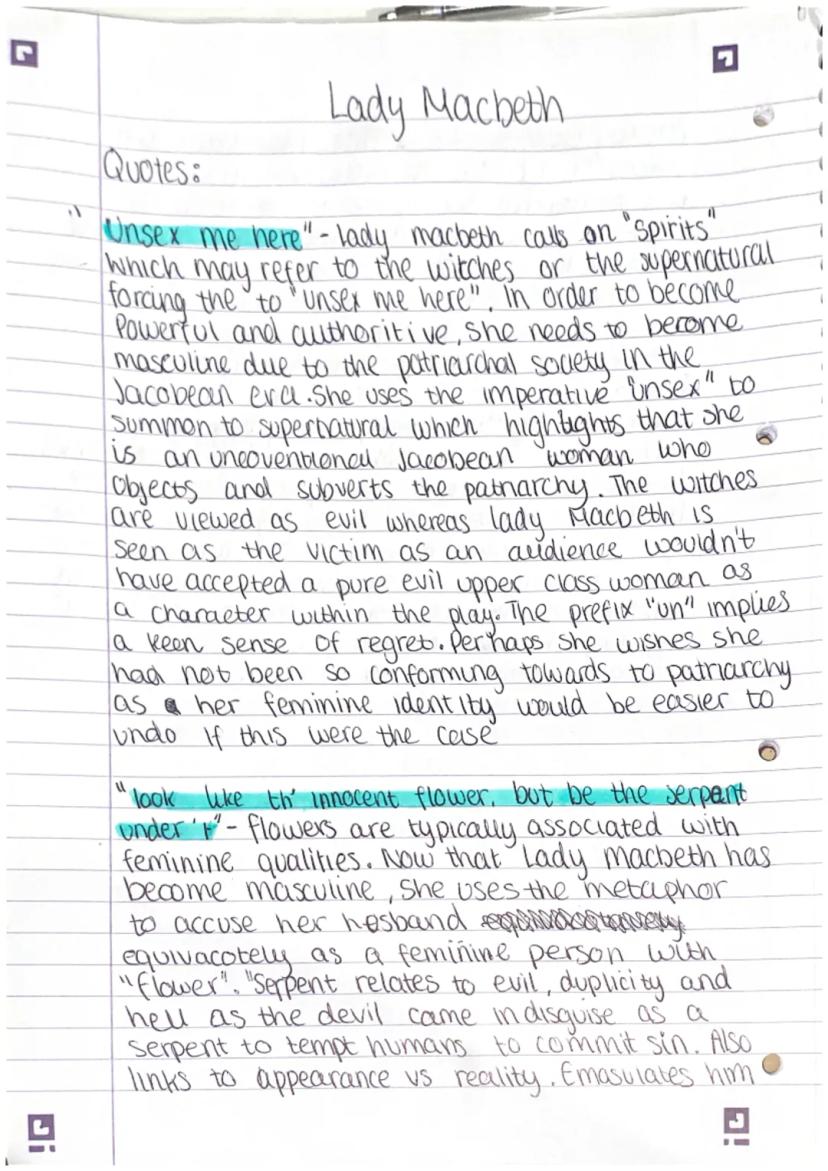 Lady Macbeth
Quotes:
"Unsex me here" - lady macbeth calls on "spirits"
which may refer to the witches or the supernatural
forcing the to "unsex me here". In order to become
powerful and authoritive, she needs to become
masculine due to the patriarchal society in the
Jacobean era. She uses the imperative "unsex" to
summon to supernatural which highlights that she
is an uncoventional Jacobean woman who
objects and subverts the patriarchy. The witches
are viewed as evil whereas lady Macbeth is
seen as the victim as an audience wouldn't
have accepted a pure evil upper class woman as
a character within the play. The prefix "un" implies
a keen sense of regret. Perhaps she wishes she
had not been so conforming towards to patriarchy
as her feminine identity would be easier to
undo if this were the case
"look like th' innocent flower, but be the serpent
under 't" - flowers are typically associated with
feminine qualities. Now that Lady Macbeth has
become masculine, she uses the metaphor
to accuse her hosband
equivacotely as a feminine person with
"flower". "Serpent relates to evil, duplicity and
hell as the devil came in disguise as a
serpent to tempt humans to commit sin. Also
links to appearance vs reality. Emasulates him